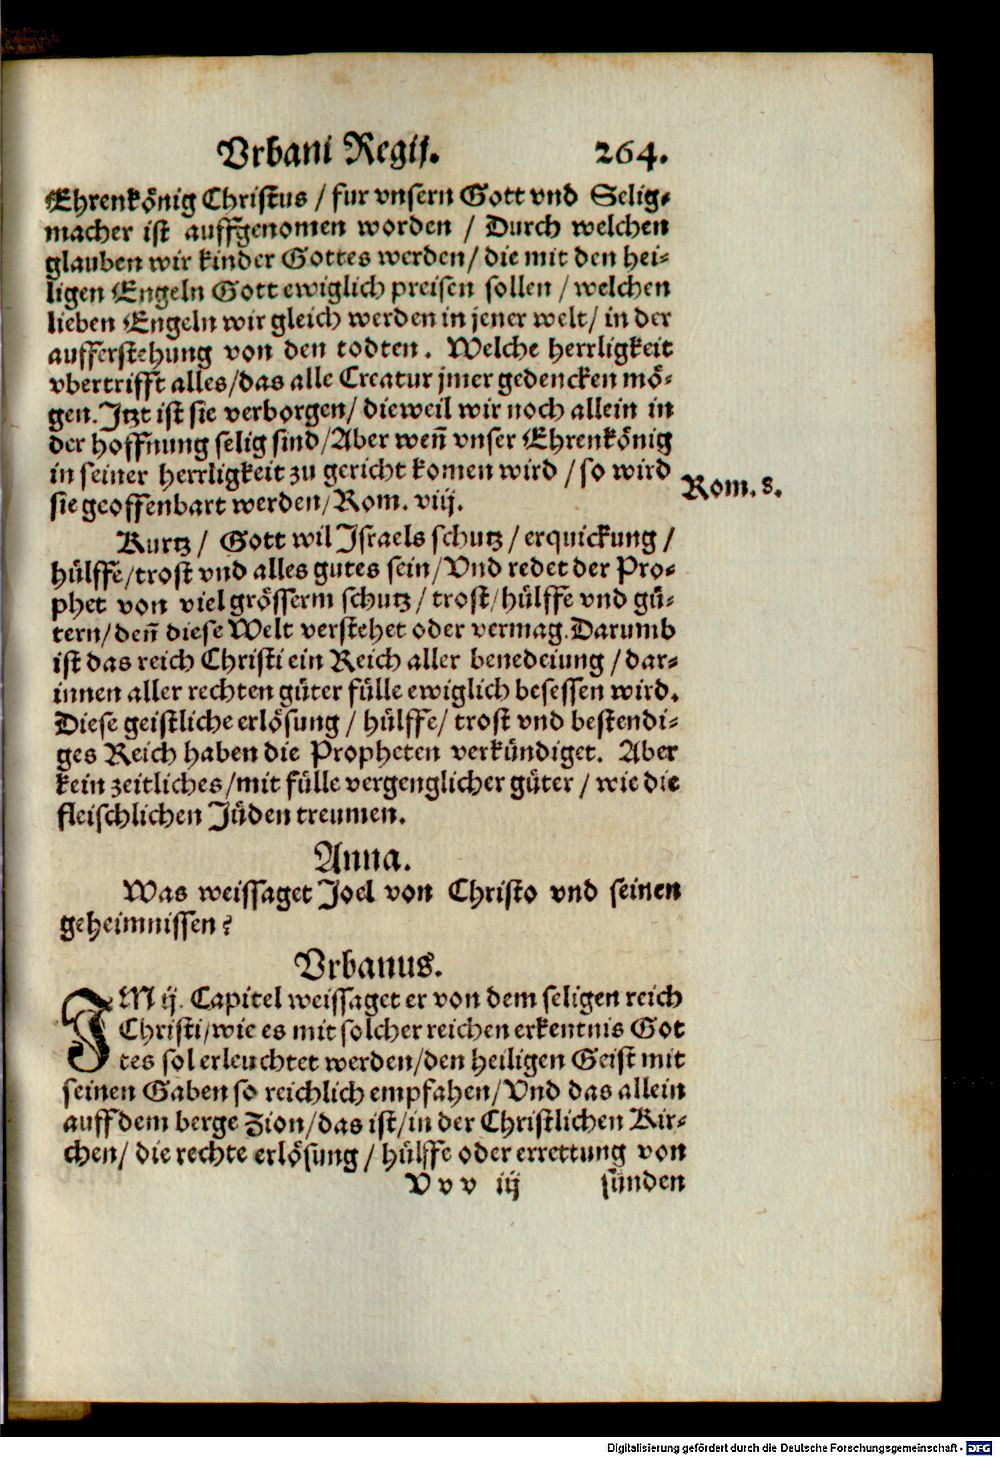 Vrbani Regij. 264.
Ehrenkönig Christus / fur vnsern Gott vnd Selig-
macher ist auffgenomen worden / Durch welchen
glauben wir kinder Gottes werden / die mit den hei-
ligen Engeln Gott ewiglich preisen sollen / welchen
lieben Engeln wir gleich werden in jener welt / in der
aufferstehung von den todten. Welche herrligkeit
vbertrifft alles / das alle Creatur jmer gedencken mö-
gen. Jtzt ist sie verborgen / dieweil wir noch allein in
der hoffnung selig sind / Aber weñ vnser Ehrenkönig
in seiner herrligkeit zu gericht komen wird / so wird
sie geoffenbart werden / Rom. viij.
Rom. 8.
Kurtz / Gott wil Israels schutz / erquickung /
hülffe / trost vnd alles gutes sein / Vnd redet der Pro-
phet von viel grösserm schutz / trost / hülffe vnd gü-
tern / deñ diese Welt verstehet oder vermag. Darumb
ist das reich Christi ein Reich aller benedeiung / dar-
innen aller rechten güter fülle ewiglich besessen wird.
Diese geistliche erlösung / hülffe / trost vnd bestendi-
ges Reich haben die Propheten verkündiget. Aber
kein zeitliches / mit fülle vergenglicher güter / wie die
fleischlichen Jüden treumen.
Anna.
Was weissaget Joel von Christo vnd seinen
geheimnissen?
Vrbanus.
JM ij. Capitel weissaget er von dem seligen reich
Christi / wie es mit solcher reichen erkentnis Got
tes sol erleuchtet werden / den heiligen Geist mit
seinen Gaben so reichlich empfahen / Vnd das allein
auff dem berge Zion / das ist / in der Christlichen Kir-
chen / die rechte erlösung / hülffe oder errettung von
V v v iij sünden
Digitalisierung gefördert durch die Deutsche Forschungsgemeinschaft - DFG